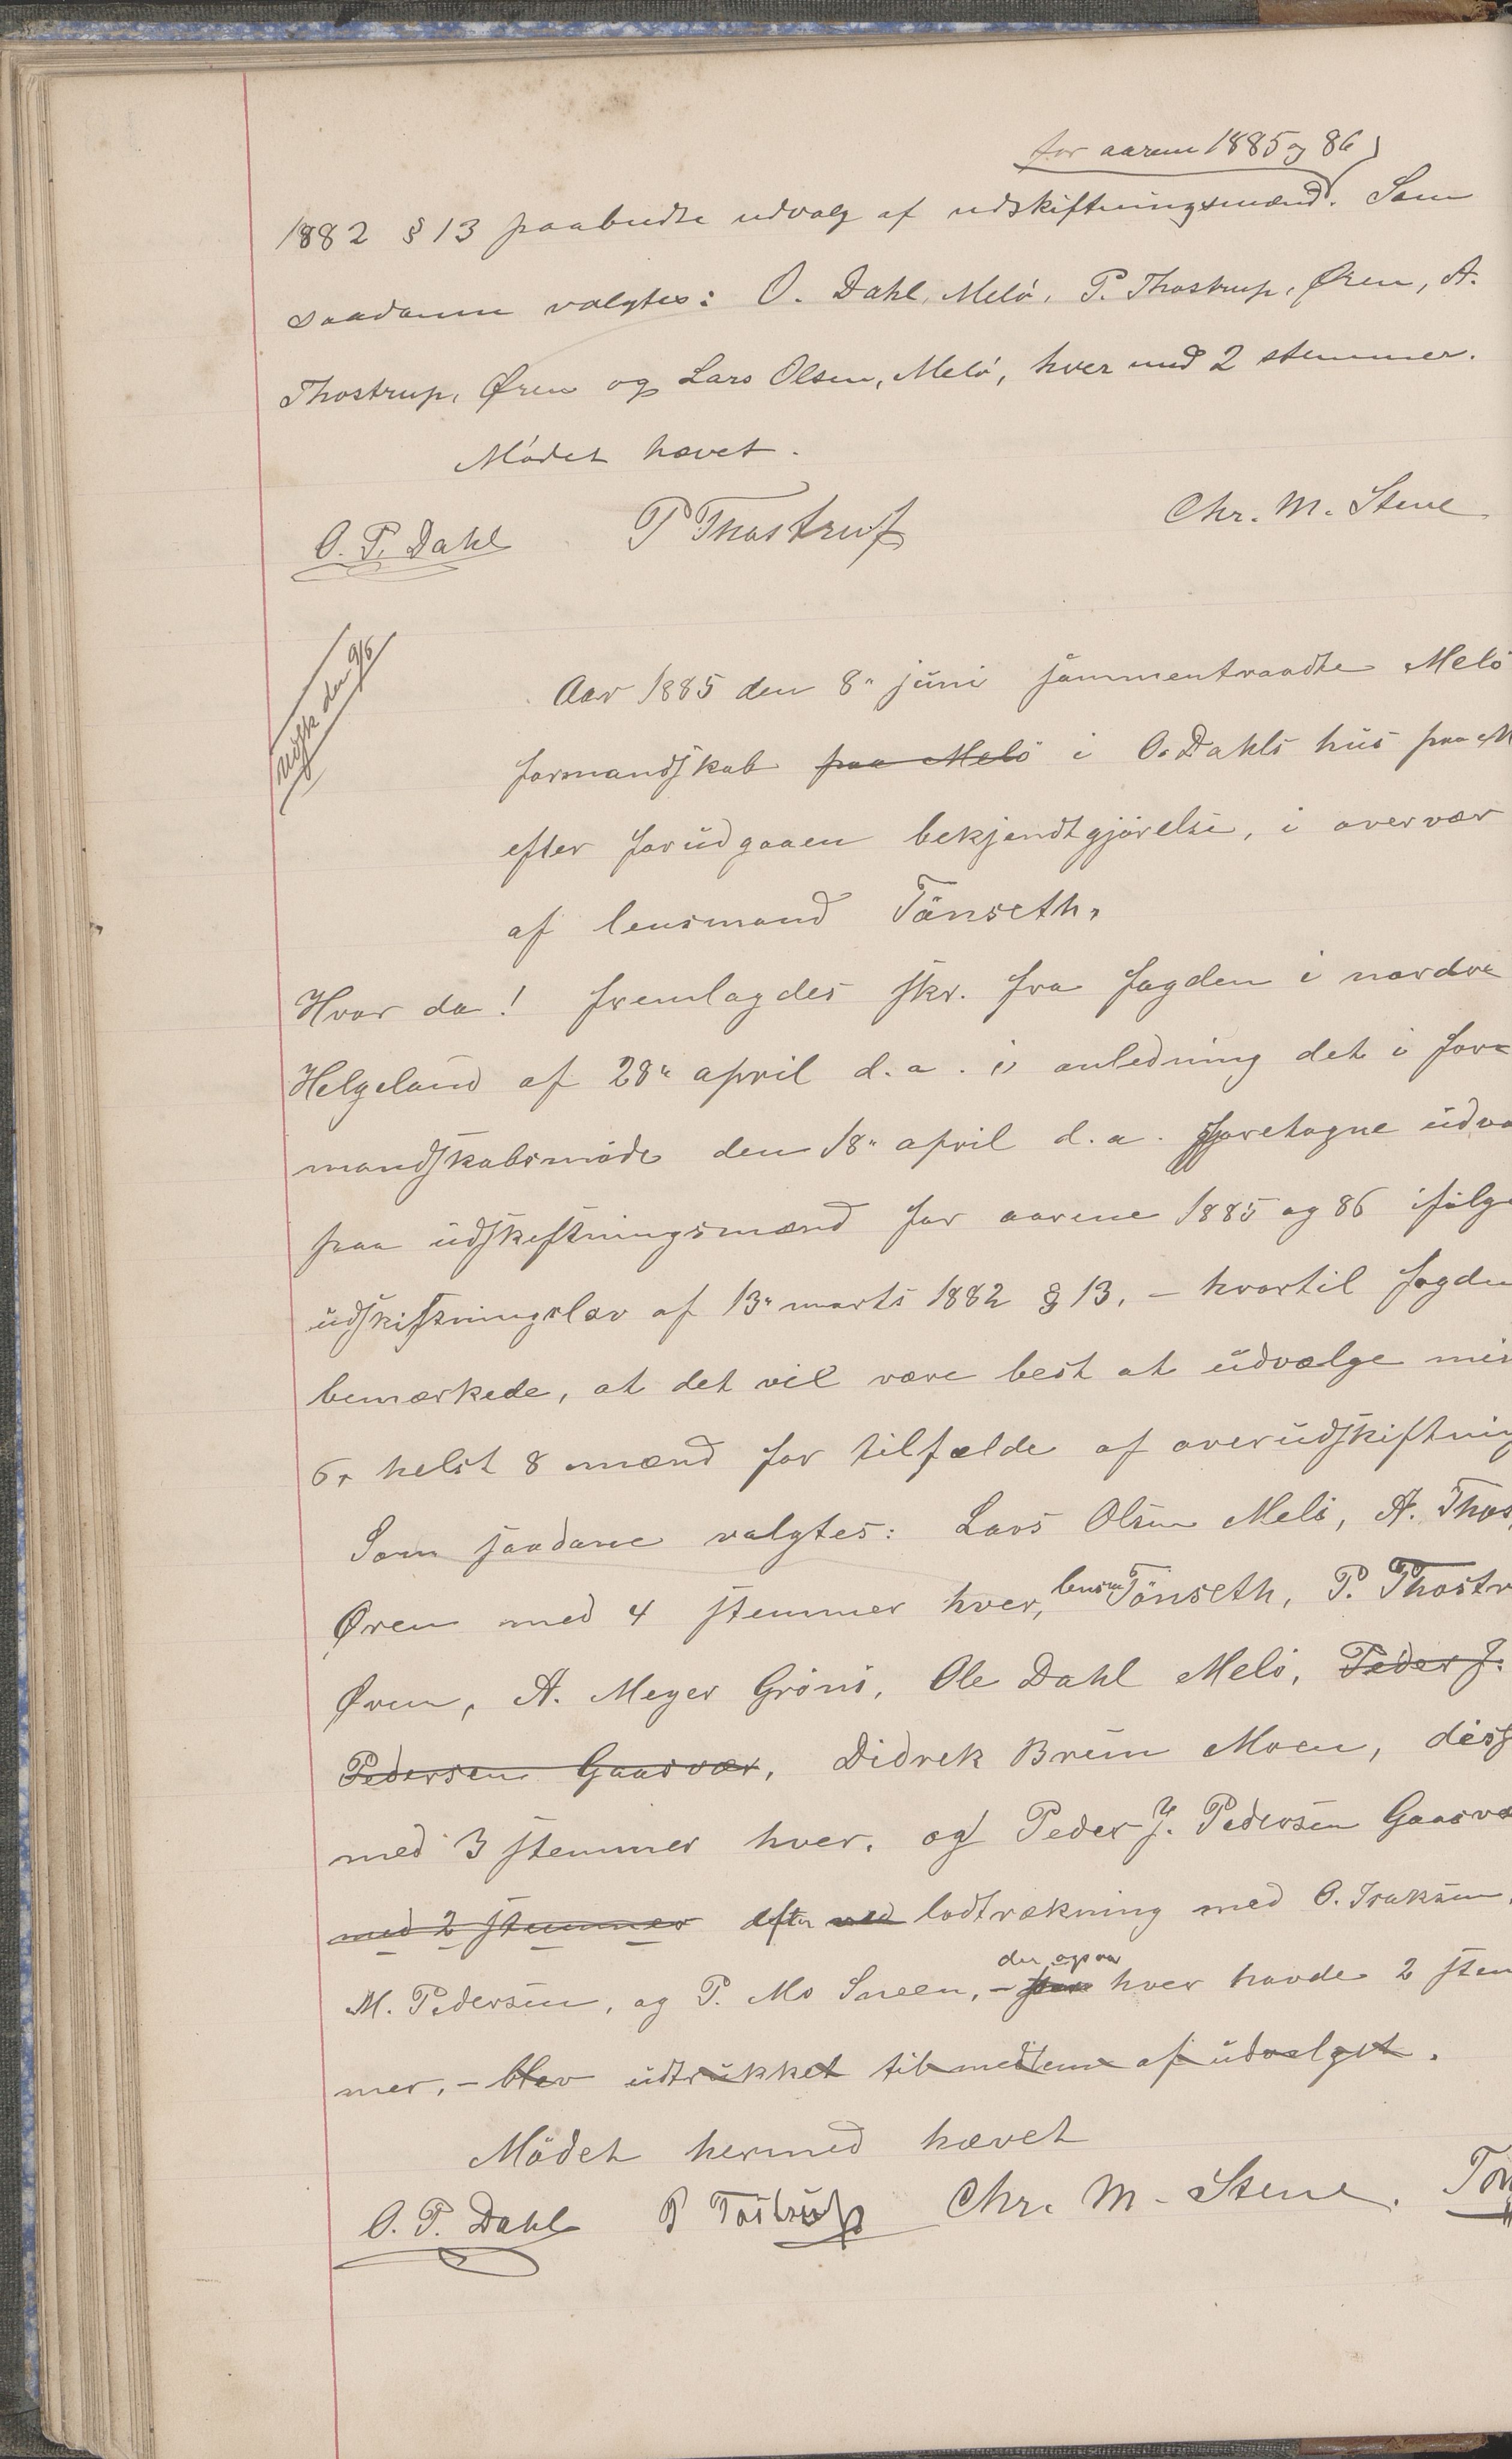 for aarene 1885 og 86
1882 § 13 paabudte udvalg af udskiftningsmænd. Som
saadanne valgtes: O. Dahl, Melö, P. Thostrup, Øren, A.
Thostrup, Øren og Lars Olsen, Melö, hver med 2 stemmer.
Mödet hævet.
O. P. Dahl P Thostrup Chr. M. Stene
udsk den 9/6
Aar 1885 den 8" juni sammentraadte Melö
formandskab paa Melö i O. Dahls hus paa M
efter forudgaaen bekjendtgjörelse, i overvær
af lensmand Tönseth.
Hvor da! fremlagdes skr. fra fogden i nordre
Helgeland af 28" april d.a. i anledning det i for=
mandskabsmöde den 18" april d.a. foretagne udva
paa udskiftningsmænd for aarene 1885 og 86 ifölge
udskiftningslov af 13" marts 1882 § 13, - hvortil fogden
bemærkede, at det vil være best at udvælge min
6, helst 8 mænd for tilfælde af overudskiftning
Som saadane valgtes: Lars Olsen Melö, A. Thos
Øren med 4 stemmer hver, lensm Tönseth, P. Thostr
Øren, A. Meyer Grönö, Ole Dahl Melö, Peder J.
Pedersen Gaasvær, Didrek Brun Moen, diss
med 3 stemmer hver. og Peder J. Pedersen Gaasvæ
med 2 stemmer efter ved lodtrækning med O. Isaksen,
M. Pedersen, og P. Mo Sneen, - der ogsaa hver havde 2 stem
mer, - blev udtrukket til medlem af udvalget.
Mödet hermed hævet
O. P. Dahl P Tostrup Chr. M. Stene. Tön